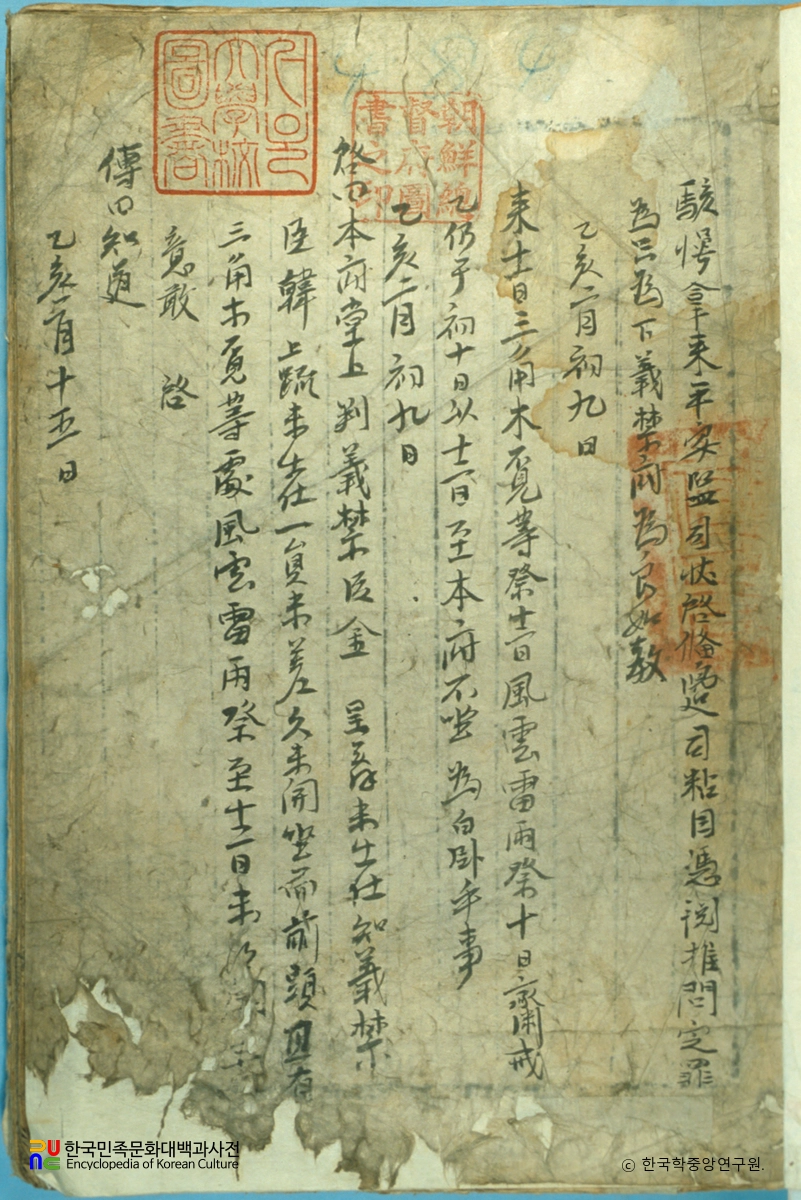 駭愕拿來平安監司狀啓備邊司粘目憑閱推問定罪
為只為下義禁府為良如教
乙亥二月初九日
來十一日三角木覓等祭十二日風雲雷雨祭十日齋戒
乙仍于初十日以十二日至本府不坐為白臥乎事
乙亥二月初九日
啓曰本府堂上判義禁臣金 呈辭未出仕知義禁
臣韓 上疏未出仕一員未差久未開坐而前頭且有
三角木覓等處風雲雷雨祭至十二日未
意敢 啓
傳曰知道
乙亥二月十五日
朝鮮總督府圖書之印
서울大學校圖書
한국민족문화대백과사전
Encyclopedia of Korean Culture
© 한국학중앙연구원.